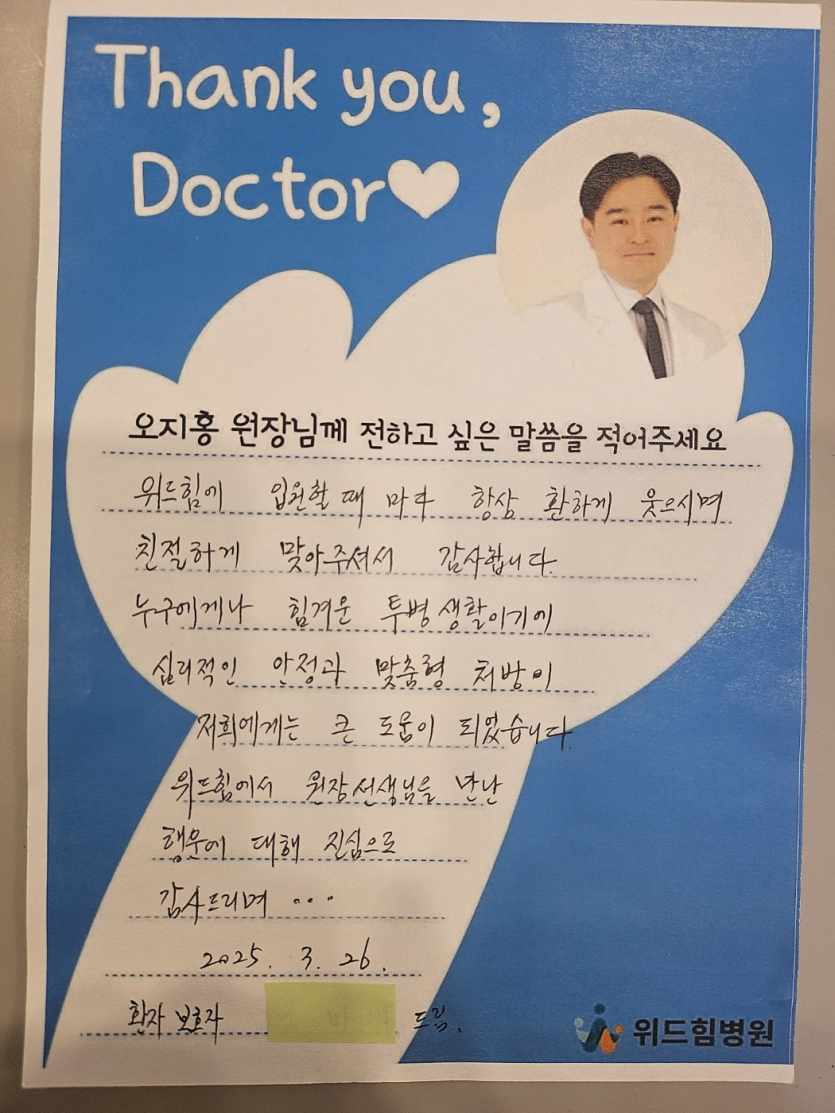 Thank you,
Doctor♥
오지홍 원장님께 전하고 싶은 말씀을 적어주세요
위드힘에 입원할 때 마다 항상 환하게 웃으시며
친절하게 맞아주셔서 감사합니다.
누구에게나 힘겨운 투병생활이기에
심리적인 안정과 맞춤형 처방이
저희에게는 큰 도움이 되었습니다.
위드힘에서 원장선생님을 만난
행운에 대해 진심으로
감사드리며 ...
2025. 3. 26.
환자 보호자 드림.
위드힘병원